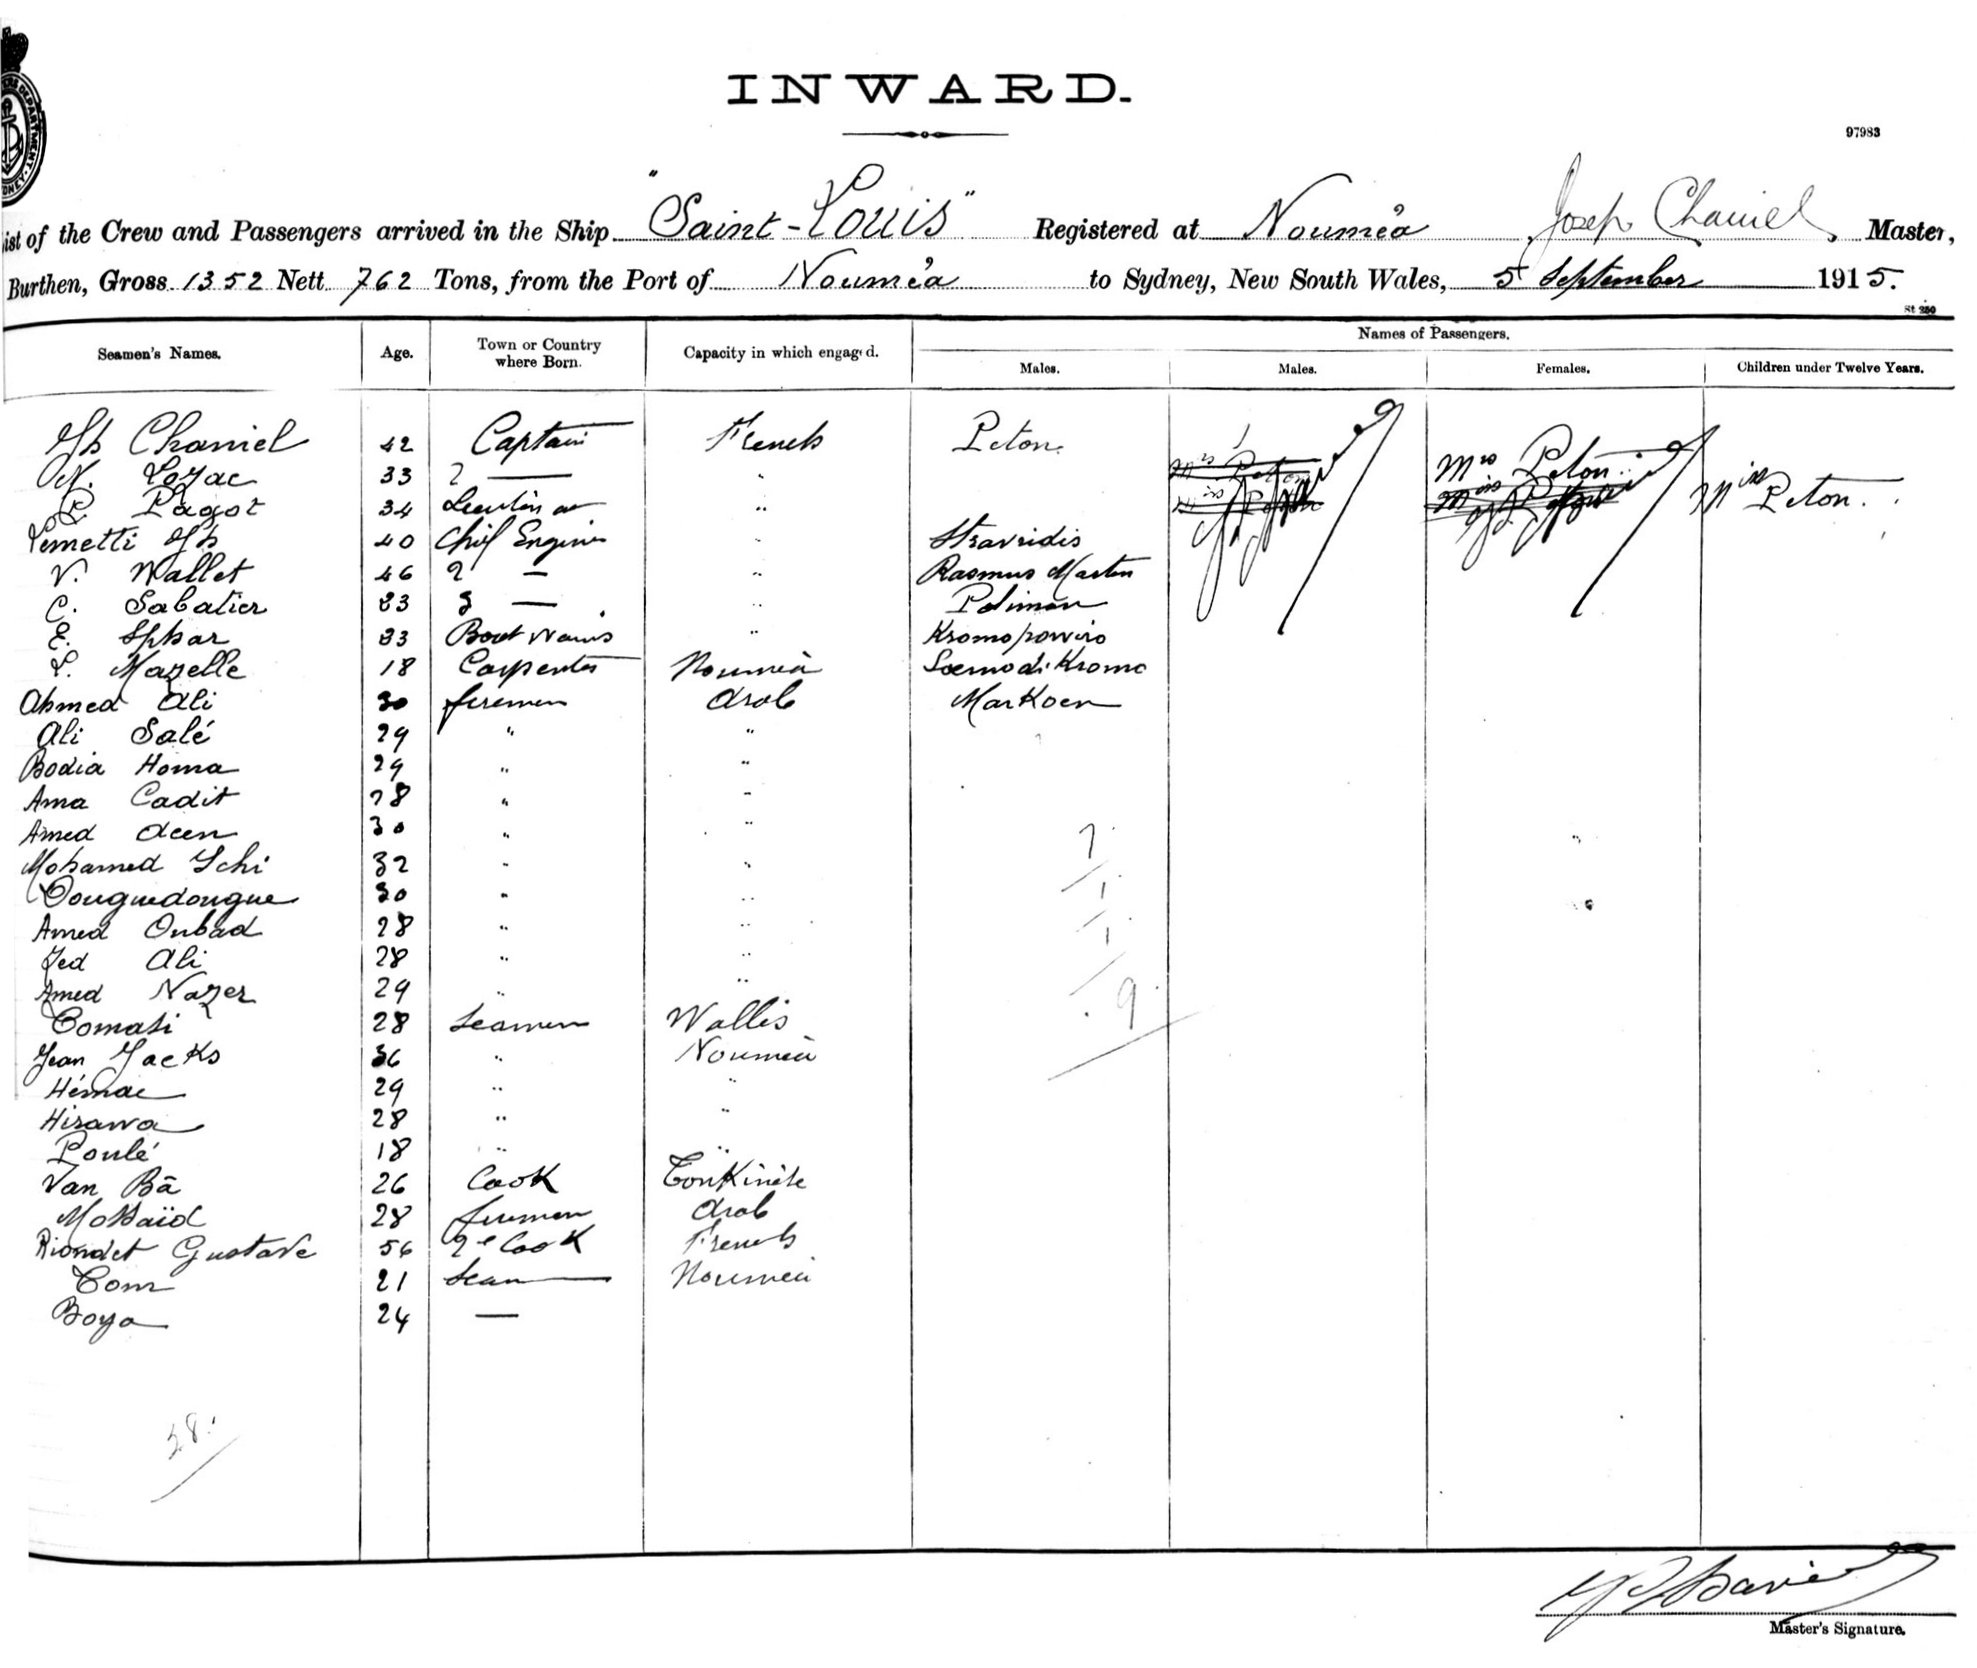 INWARD.
97983
ist of the Crew and Passengers arrived in the Ship "Saint-Louis" Registered at Nouméa Joseph Chaniel, Master,
Burthen, Gross 1352 Nett 762 Tons, from the Port of Nouméa to Sydney, New South Wales, 5 September 1915.
St 250
Seamen's Names. Age. Town or Country where Born. Capacity in which engaged. Names of Passengers.
Males. Males. Females. Children under Twelve Years.
Jh Chaniel 42 Captain French Peton.
N. Lozac 33 2 — " Mrs Peton
P. Pagot 34 " Miss Peton.
Lemetti Jh 40 Chief Engineer " Stavridis
V. Wallet 46 2 — " Rasmus Marten
C. Sabatier 33 3 — " Poliman
E. Sphar 33 " Kromopawiro
L. Mazelle 18 Carpenter Nouméa Soemodi Kromo
Ahmed Ali 30 firemen Arab Markoen
Ali Salé 29 " "
Bodia Homa 29 " "
Ama Cadit 28 " "
Amed Deen 30 " "
7
Mohamed Ichi 32 " "
1
Douguedougue 30 " "
Amed Oubad 28 " "
1
Zed Ali 28 " "
Amed Nazer 29 " "
9
Tomasi 28 Seamen Wallis
Jean Jacks 36 " Nouméa
Hémae 29 " "
Hisawa 28 " "
Poulé 18 " "
Van Bā 26 Cook Tonkinese
Mosaïd 28 firemen Arab
Riondet Gustave 56 2e Cook French
Tom 21 Sean — Nouméa
Boya 24 —
28.
Master's Signature.